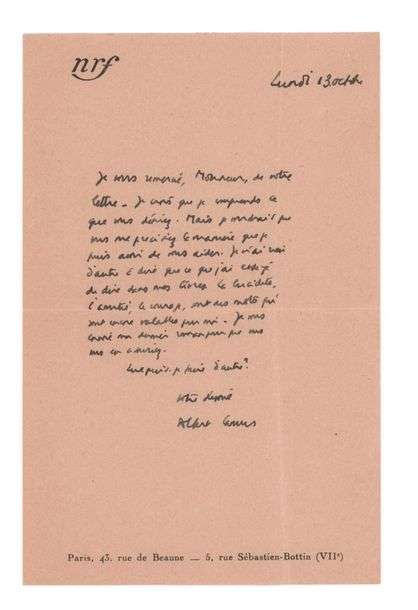 nrf
Lundi 13 octobre
Je vous remercie, Monsieur, de votre
lettre. Je crois que je comprends ce
que vous désirez. Mais je voudrais que
vous me précisiez la manière que je
puis avoir de vous aider. Je n'ai rien
d'autre à dire que ce que j'ai essayé
de dire dans mes livres. La lucidité,
l'amitié, le courage, sont des mots qui
sont encore valables pour moi. Je vous
mon dernier roman pour que vous
en
Que puis-je faire d'autre?
votre dévoué
Albert Camus
Paris, 43, rue de Beaune — 5, rue Sébastien-Bottin (VIIe)